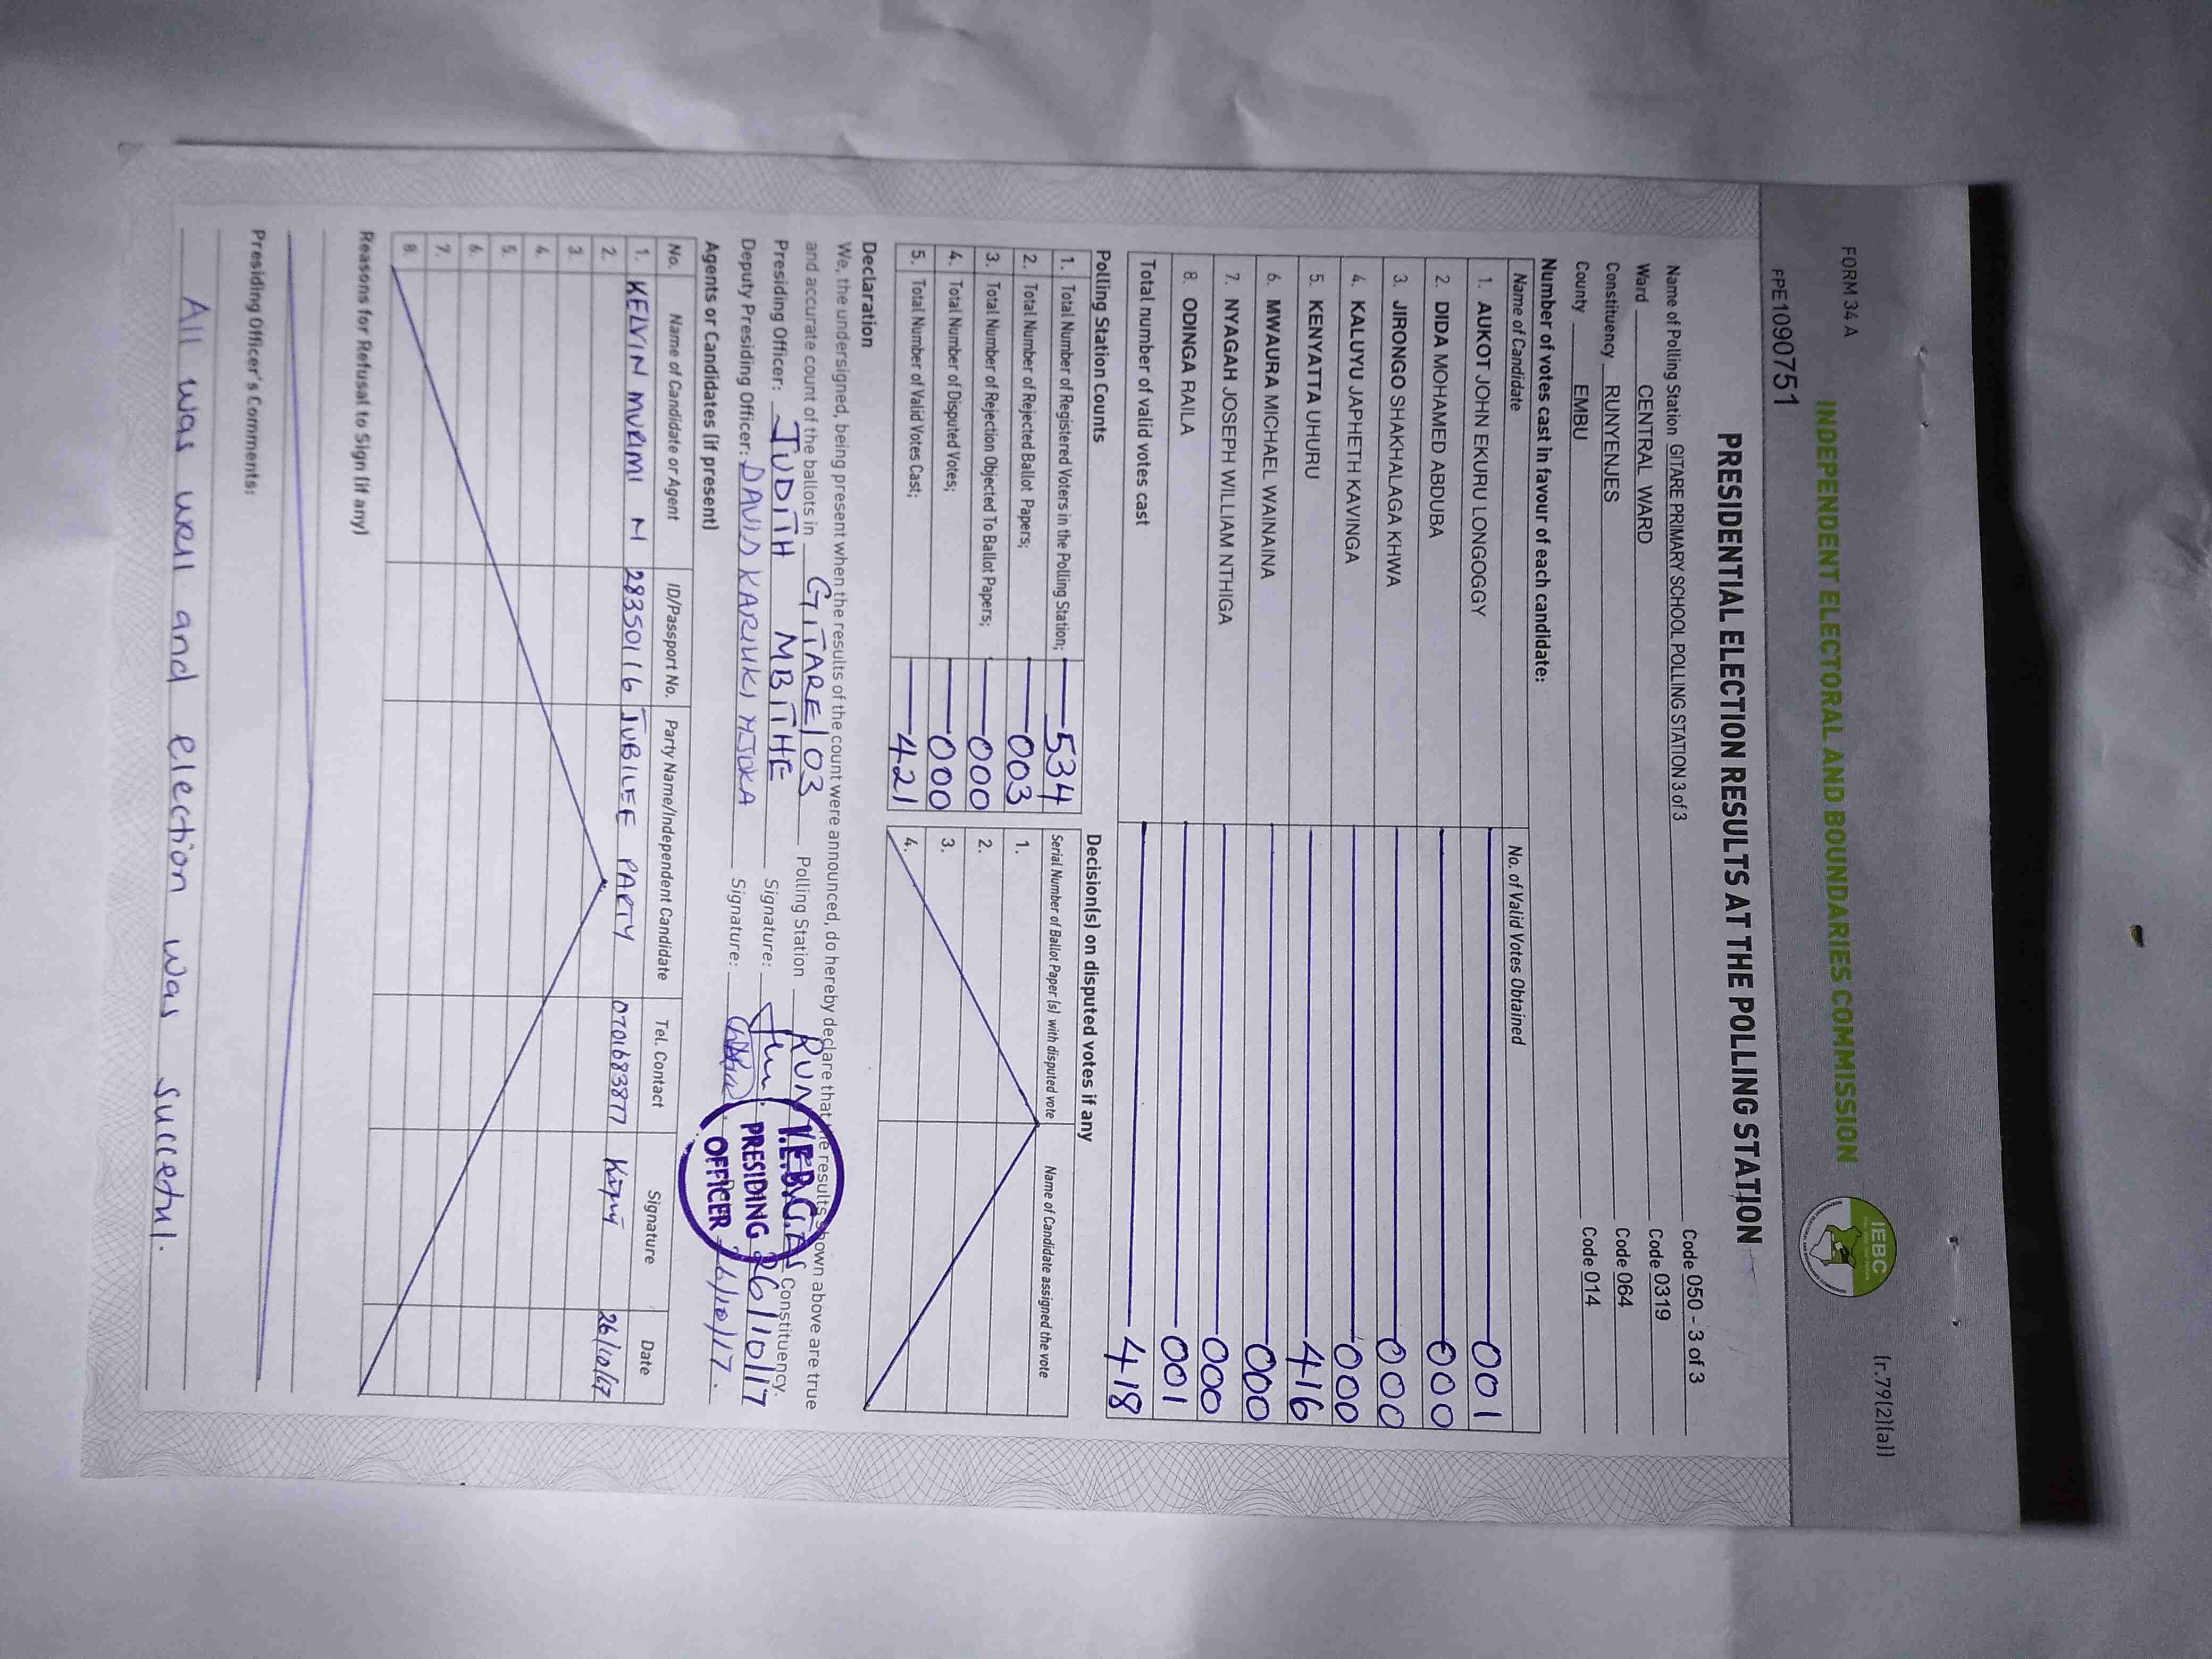 FORM 34 A
(r.79(2)(a))
INDEPENDENT ELECTORAL AND BOUNDARIES COMMISSION
IEBC
FPE1090751
PRESIDENTIAL ELECTION RESULTS AT THE POLLING STATION
Name of Polling Station GITARE PRIMARY SCHOOL POLLING STATION 3 of 3 Code 050 - 3 of 3
Ward CENTRAL WARD Code 0319
Constituency RUNYENJES Code 064
County EMBU Code 014
Number of votes cast in favour of each candidate:
Name of Candidate No. of Valid Votes Obtained
1. AUKOT JOHN EKURU LONGOGGY 001
2. DIDA MOHAMED ABDUBA 000
3. JIRONGO SHAKHALAGA KHWA 000
4. KALUYU JAPHETH KAVINGA 000
5. KENYATTA UHURU 416
6. MWAURA MICHAEL WAINAINA 000
7. NYAGAH JOSEPH WILLIAM NTHIGA 000
8. ODINGA RAILA 001
Total number of valid votes cast 418
Polling Station Counts
1. Total Number of Registered Voters in the Polling Station; 534
2. Total Number of Rejected Ballot Papers; 003
3. Total Number of Rejection Objected To Ballot Papers; 000
4. Total Number of Disputed Votes; 000
5. Total Number of Valid Votes Cast; 421
Decision(s) on disputed votes if any
Serial Number of Ballot Paper (s) with disputed vote Name of Candidate assigned the vote
1.
2.
3.
4.
Declaration
We, the undersigned, being present when the results of the count were announced, do hereby declare that the results shown above are true
and accurate count of the ballots in GITARE/03 Polling Station Constituency.
Presiding Officer: JUDITH MBITHE Signature: 26/10/17
Deputy Presiding Officer: DAVID KARIUKI Signature: 26/10/17.
I.E.B.C.
PRESIDING
OFFICER
Agents or Candidates (if present)
No. Name of Candidate or Agent ID/Passport No. Party Name/Independent Candidate Tel. Contact Signature Date
1. KELVIN MURIMI N 28350116 JUBILEE PARTY 0701683877 26/10/17
2.
3.
4.
5.
6.
7.
8.
Reasons for Refusal to Sign (if any)
Presiding Officer's Comments:
All was well and election was succeful.